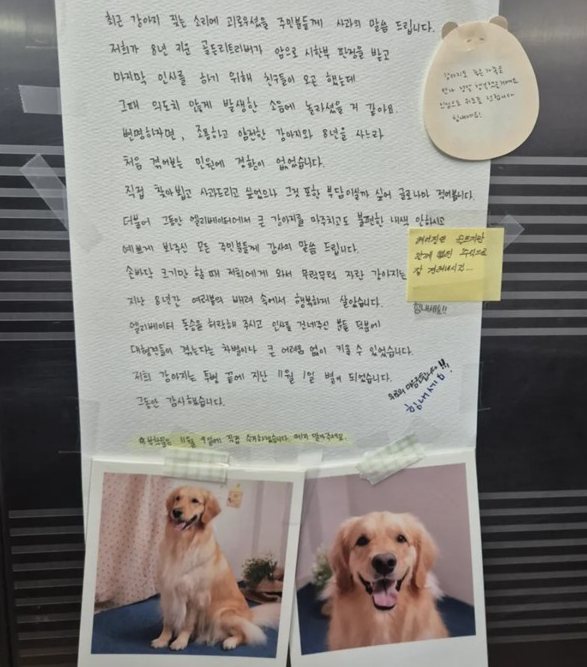 최근 강아지 짖는 소리에 괴로우셨을 주민분들께 사과의 말씀 드립니다.
저희가 8년 키운 골든리트리버가 암으로 시한부 판정을 받고
마지막 인사를 하기 위해 친구들이 오곤 했는데
그때 의도치 않게 발생한 소음에 놀라셨을 거 같아요.
변명하자면, 조용하고 얌전한 강아지와 8년을 사느라
처음 겪어보는 민원에 경황이 없었습니다.
직접 찾아뵙고 사과드리고 싶었으나 그것 또한 부담이실까 싶어 글로나마 적어봅니다.
더불어 그동안 엘리베이터에서 큰 강아지를 마주치고도 불편한 내색 안하시고
예쁘게 봐주신 모든 주민분들께 감사의 말씀 드립니다.
손바닥 크기만 할 때 저희에게 와서 무럭무럭 자란 강아지는
지난 8년간 여러분의 배려 속에서 행복하게 살았습니다.
엘리베이터 동승을 허락해 주시고 인사를 건네주신 분들 덕분에
대형견들이 겪는다는 차별이나 큰 어려움 없이 키울 수 있었습니다.
저희 강아지는 투병 끝에 지난 11월 1일 별이 되었습니다.
그동안 감사했습니다.
11월 9일에 직접
함께한 추억으로
잘 견뎌내시길...
힘내세요!!
힘내세요!